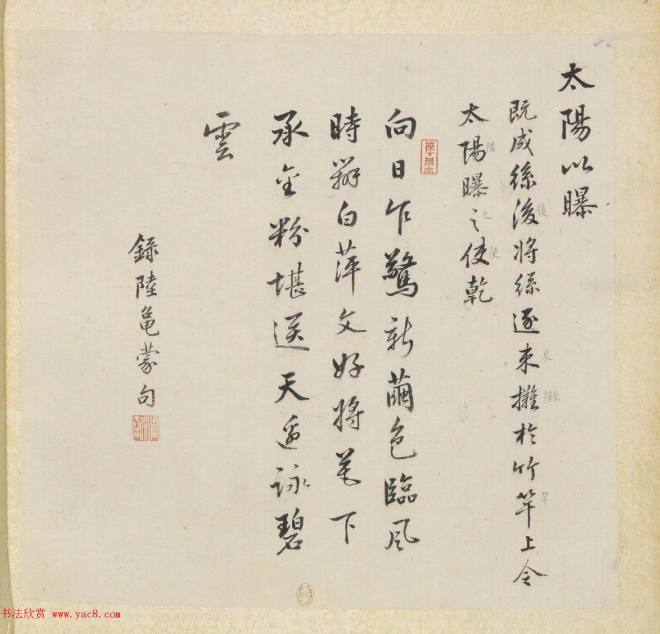 太陽以曝
既成絲後將絲逐束攤於竹竿上令
太陽曝之使乾
向日乍驚新繭色臨風
時辨白萍文好將花下
承金粉堪送天邊詠碧
雲
錄陸龜蒙句
书法欣赏 www.yac8.com